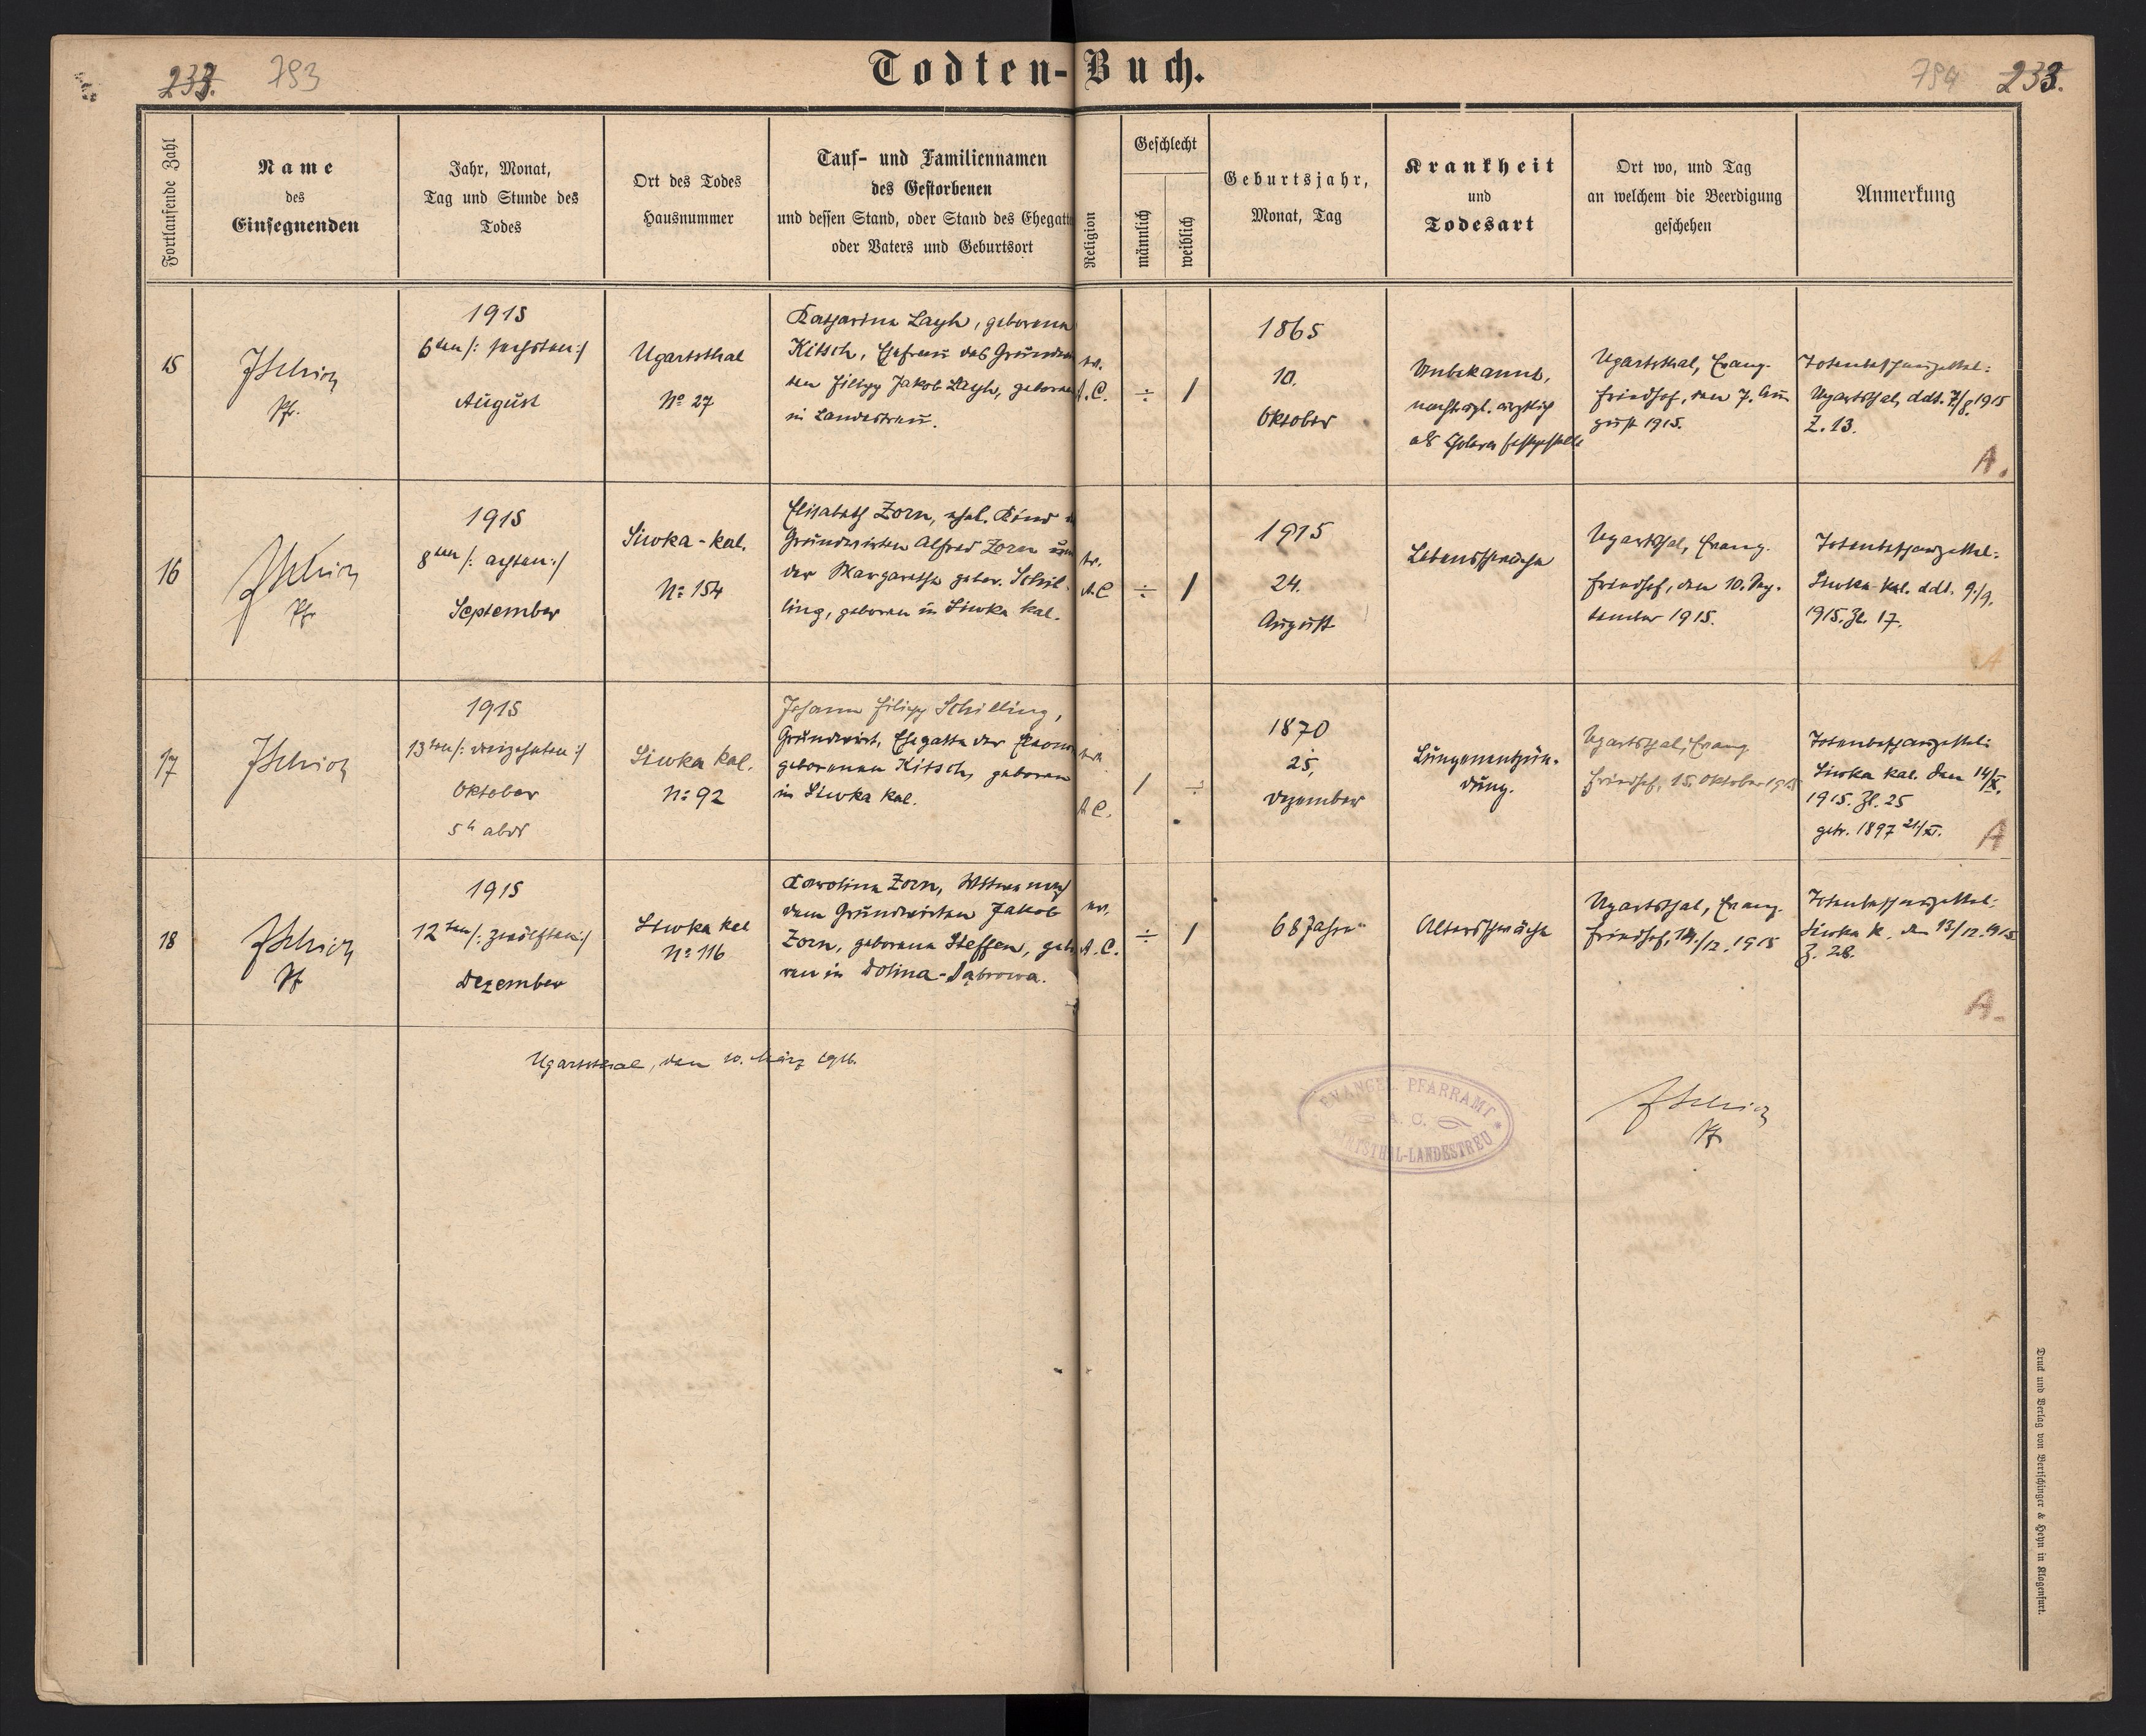 Todten-Buch.
233. 793
794 233.
Fortlaufende Zahl
Name
des
Einsegnenden
Jahr, Monat,
Tag und Stunde des
Todes
Ort des Todes
Hausnummer
Tauf- und Familiennamen
des Gestorbenen
und dessen Stand, oder Stand des Ehegatt
oder Vaters und Geburtsort
Religion
Geschlecht
männlich
weiblich
Geburtsjahr,
Monat, Tag
Krankheit
und
Todesart
Ort wo, und Tag
an welchem die Beerdigung
geschehen
Anmerkung
15
Pfr.
1915
6ten /: sechsten :/
August
Ugartsthal
No 27
Katharina Layh, geborene
Kitsch, Ehefrau des Grundwir
ten Filipp Jakob Layh, geboren
in Landestreu.
ev.
A.C.
÷ 1
1865
10.
Oktober
Unbekannt,
ärztlich
als Cholera festgestellt
Ugartsthal, Evang.
Friedhof, den 7. Au
gust 1915.
Totenbeschauzettel:
Ugartsthal, ddt. 7/8. 1915
Z. 13.
A.
16
Pfr
1915
8ten /: achten :/
September
Siwka-kal.
No 154
Elisabeth Zorn, ehel. Kind d
Grundwirten Alfred Zorn un
der Margaretha gebor. Schil-
ling, geboren in Siwka kal.
ev.
A.C
÷ 1
1915
24.
August
Lebensschwäche
Ugartsthal, Evang.
Friedhof, den 10. Sep-
tember 1915.
Totenbeschauzettel:
Siwka-kal. ddt. 9./9.
1915. Zl. 17.
A
17
1915
13ten /: dreizehnten :/
Oktober
5h abds
Siwka kal.
No 92
Johann Filipp Schilling,
Grundwirt, Ehegatte der
geborenen Kitsch, geboren
in Siwka kal.
ev.
A.C.
1 ÷
1870
25.
Dezember
Lungenentzün-
dung.
Ugartsthal, Evang.
Friedhof, 15. Oktober 1915
Totenbeschauzettel:
Siwka kal. den 14/X.
1915. Zl. 25
getr. 1897 21/XI.
A
18
Pf
1915
12ten /: zwölften :/
Dezember
Siwka kal
No 116
Karolina Zorn, Witwe nach
dem Grundwirten Jakob
Zorn, geborene Steffen, gebo
ren in Dolina-Dąbrowa.
ev.
A.C.
÷ 1
68 Jahre
Altersschwäche
Ugartsthal, Evang.
Friedhof, 14./12. 1915
Totenbeschauzettel:
Siwka k. den 13/12. 1915
Z. 28.
A.
Ugartsthal, den 10. März 1916.
EVANGEL. PFARRAMT
A. C.
RTSTHAL-LANDESTREU
Pf
Druck und Verlag von Bertschinger & Heyn in Klagenfurt.